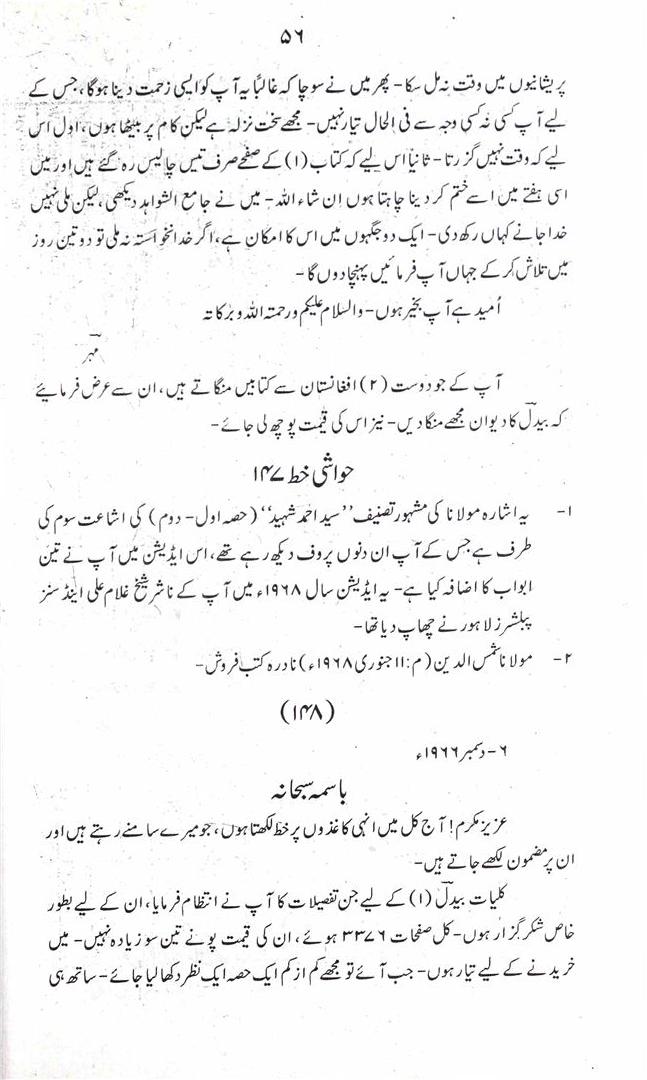 ۵۶
پریشانیوں میں وقت نہ مل سکا۔ پھر میں نے سوچا کہ غالباً یہ آپ کو ایسی زحمت دینا ہوگا، جس کے
لیے آپ کسی نہ کسی وجہ سے فی الحال تیار نہیں۔ مجھے سخت نزلہ ہے لیکن کام پر بیٹھا ہوں، اول اس
لیے کہ وقت نہیں گزرتا۔ ثانیاً اس لیے کہ کتاب (۱) کے صفحے صرف تیس چالیس رہ گئے ہیں اور میں
اسی ہفتے میں اسے ختم کر دینا چاہتا ہوں اِن شاء اللہ۔ میں نے جامع الشواہد دیکھی، لیکن ملی نہیں
خدا جانے کہاں رکھ دی۔ ایک دو جگہوں میں اس کا امکان ہے، اگر خدانخواستہ نہ ملی تو دو تین روز
میں تلاش کر کے جہاں آپ فرمائیں پہنچا دوں گا۔
اُمید ہے آپ بخیر ہوں۔ والسلام علیکم ورحمتہ اللہ وبرکاتہ
مہر
آپ کے جو دوست (۲) افغانستان سے کتابیں منگاتے ہیں، ان سے عرض فرمائیے
کہ بیدلؔ کا دیوان مجھے منگا دیں۔ نیز اس کی قیمت پوچھ لی جائے۔
حواشی خط ۱۴۷
۱- یہ اشارہ مولانا کی مشہور تصنیف ’’سید احمد شہید‘‘ (حصہ اول۔ دوم) کی اشاعت سوم کی
طرف ہے جس کے آپ ان دنوں پروف دیکھ رہے تھے، اس ایڈیشن میں آپ نے تین
ابواب کا اضافہ کیا ہے۔ یہ ایڈیشن سال ۱۹۶۸ء میں آپ کے ناشر شیخ غلام علی اینڈ سنز
پبلشرز لاہور نے چھاپ دیا تھا۔
۲- مولانا شمس الدین (م: ۱۱ جنوری ۱۹۶۸ء) نادرہ کتب فروش۔
(۱۴۸)
۶- دسمبر ۱۹۶۶ء
باسمہ سبحانہ
عزیز مکرم! آج کل میں انہی کاغذوں پر خط لکھتا ہوں، جو میرے سامنے رہتے ہیں اور
ان پر مضمون لکھے جاتے ہیں۔
کلیات بیدلؔ (۱) کے لیے جن تفصیلات کا آپ نے انتظام فرمایا، ان کے لیے بطور
خاص شکر گزار ہوں۔ کل صفحات ۳۳۷۶ ہوئے، ان کی قیمت پونے تین سو زیادہ نہیں۔ میں
خریدنے کے لیے تیار ہوں۔ جب آئے تو مجھے کم از کم ایک حصہ ایک نظر دکھا لیا جائے۔ ساتھ ہی